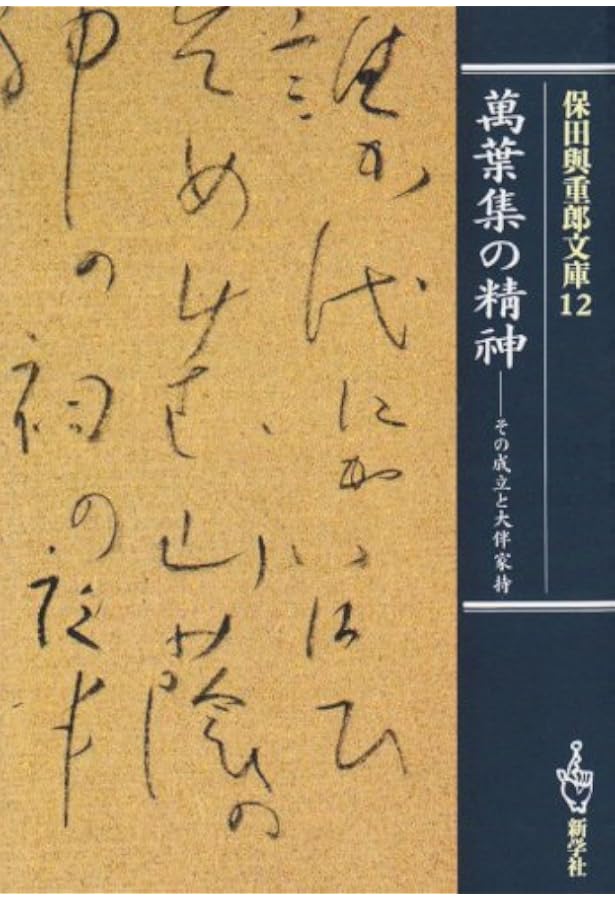 保田與重郎文庫12
萬葉集の精神
——その成立と大伴家持
新学社
誰か代にかいはひ
そめけむ山陰の
神の祠の